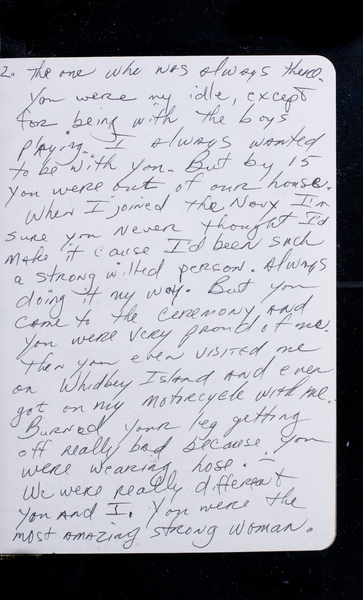 2. The one who was always there.
You were my idle, except
for being with the boys
playing. I always wanted
to be with you. But by 15
you were out of our house.
When I joined the Navy I'm
sure you never thought I'd
make it cause I'd been such
a strong willed person. Always
doing it my way. But you
came to the ceremony and
you were very proud of me.
Then you even visited me
on Whidbey Island and even
got on my motircycle with me.
Burned your leg getting
off really bad because you
were wearing hose.
We were really different
you and I. You were the
most amazing strong woman.